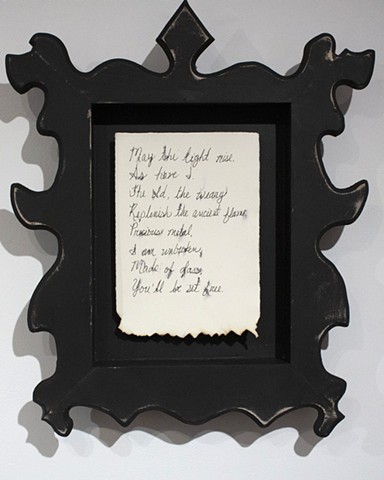 May the light rise.
As have I
The old, the weary
Replenish the ancient flame,
Precious metal,
I am unbroken,
Made of glass,
You'll be set free.